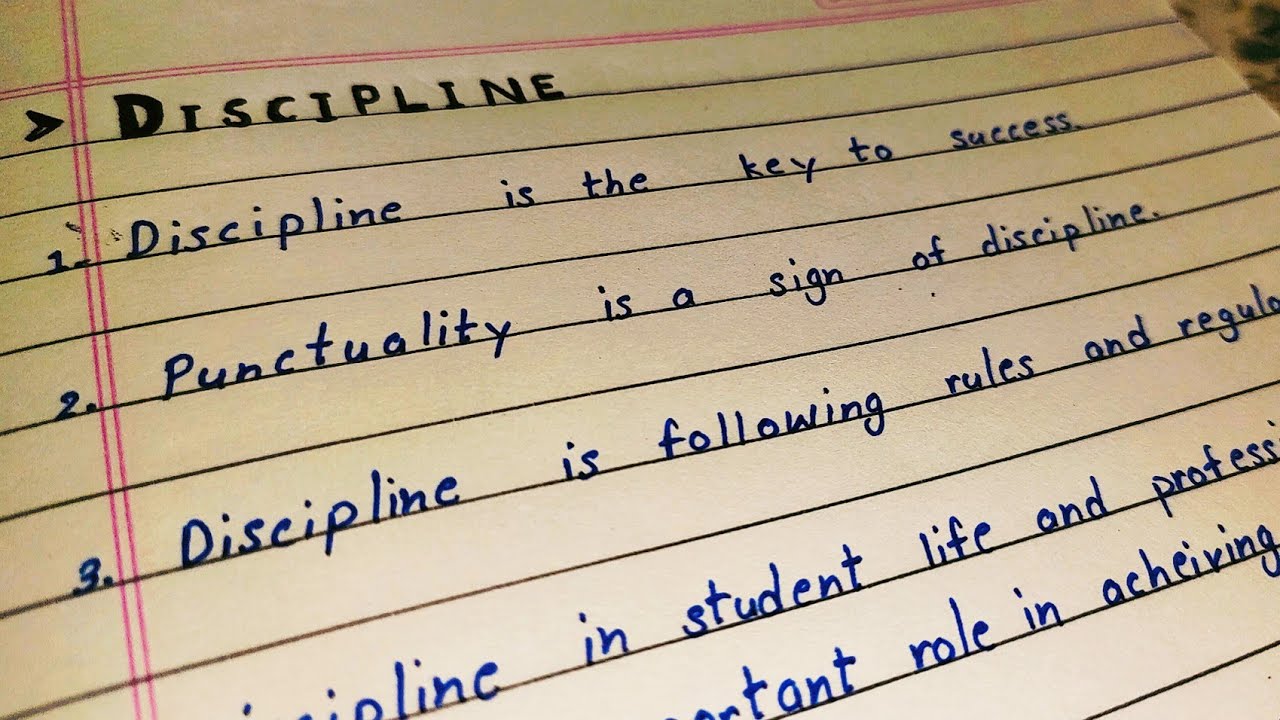 > DISCIPLINE
1. Discipline is the key to success.
2. Punctuality is a sign of discipline.
3. Discipline is following rules and regula
cipline in student life and professi
rtant role in acheiving